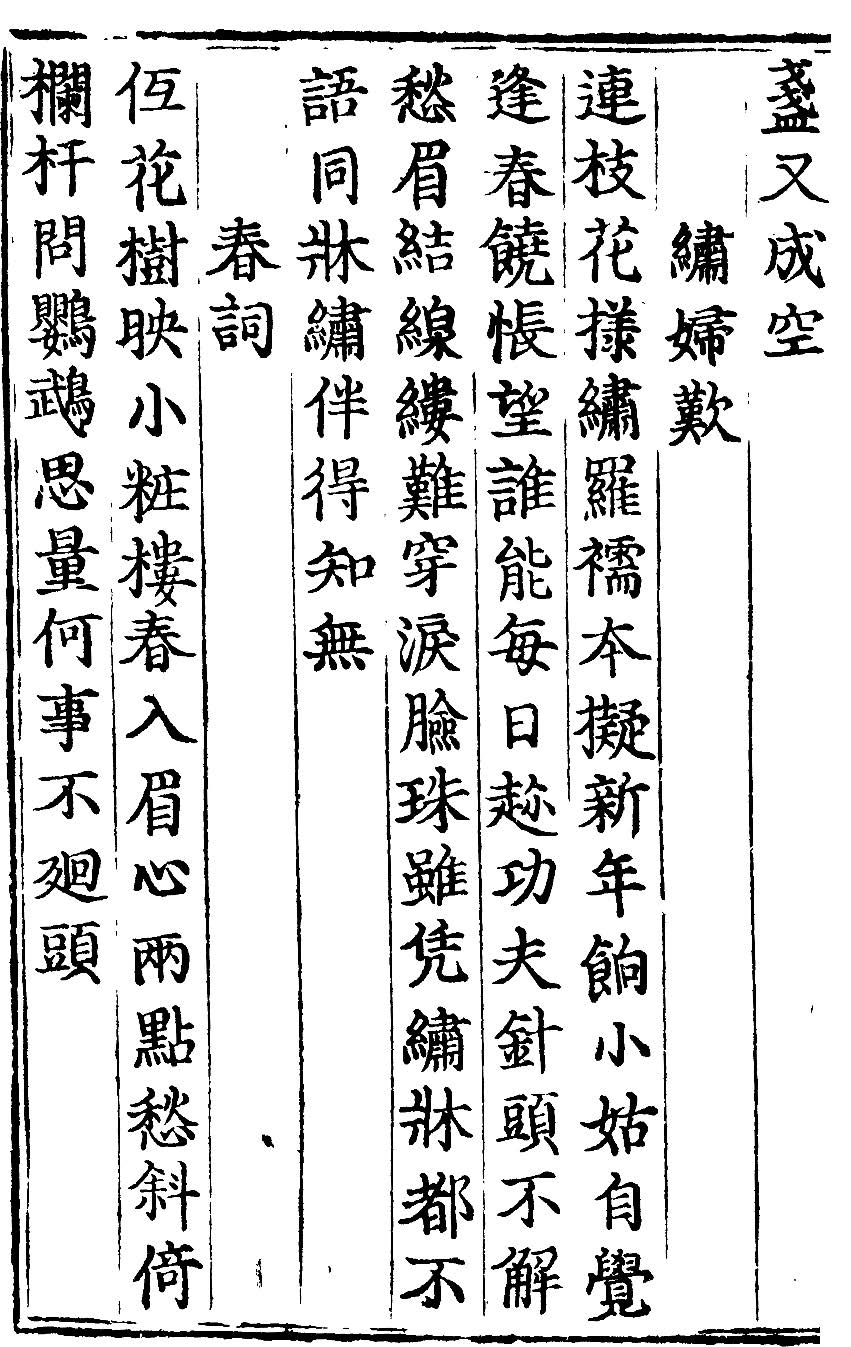 盞又成空
繡婦歎
連枝花㨾繡羅襦本擬新年餉小姑自覺
逢春饒悵望誰能每日趂功夫針頭不解
愁眉結線縷難穿淚臉珠雖凭繡牀都不
語同牀繡伴得知無
春詞
伍花樹映小粧樓春入眉心兩點愁斜倚
欄杆問鸚鵡思量何事不廻頭